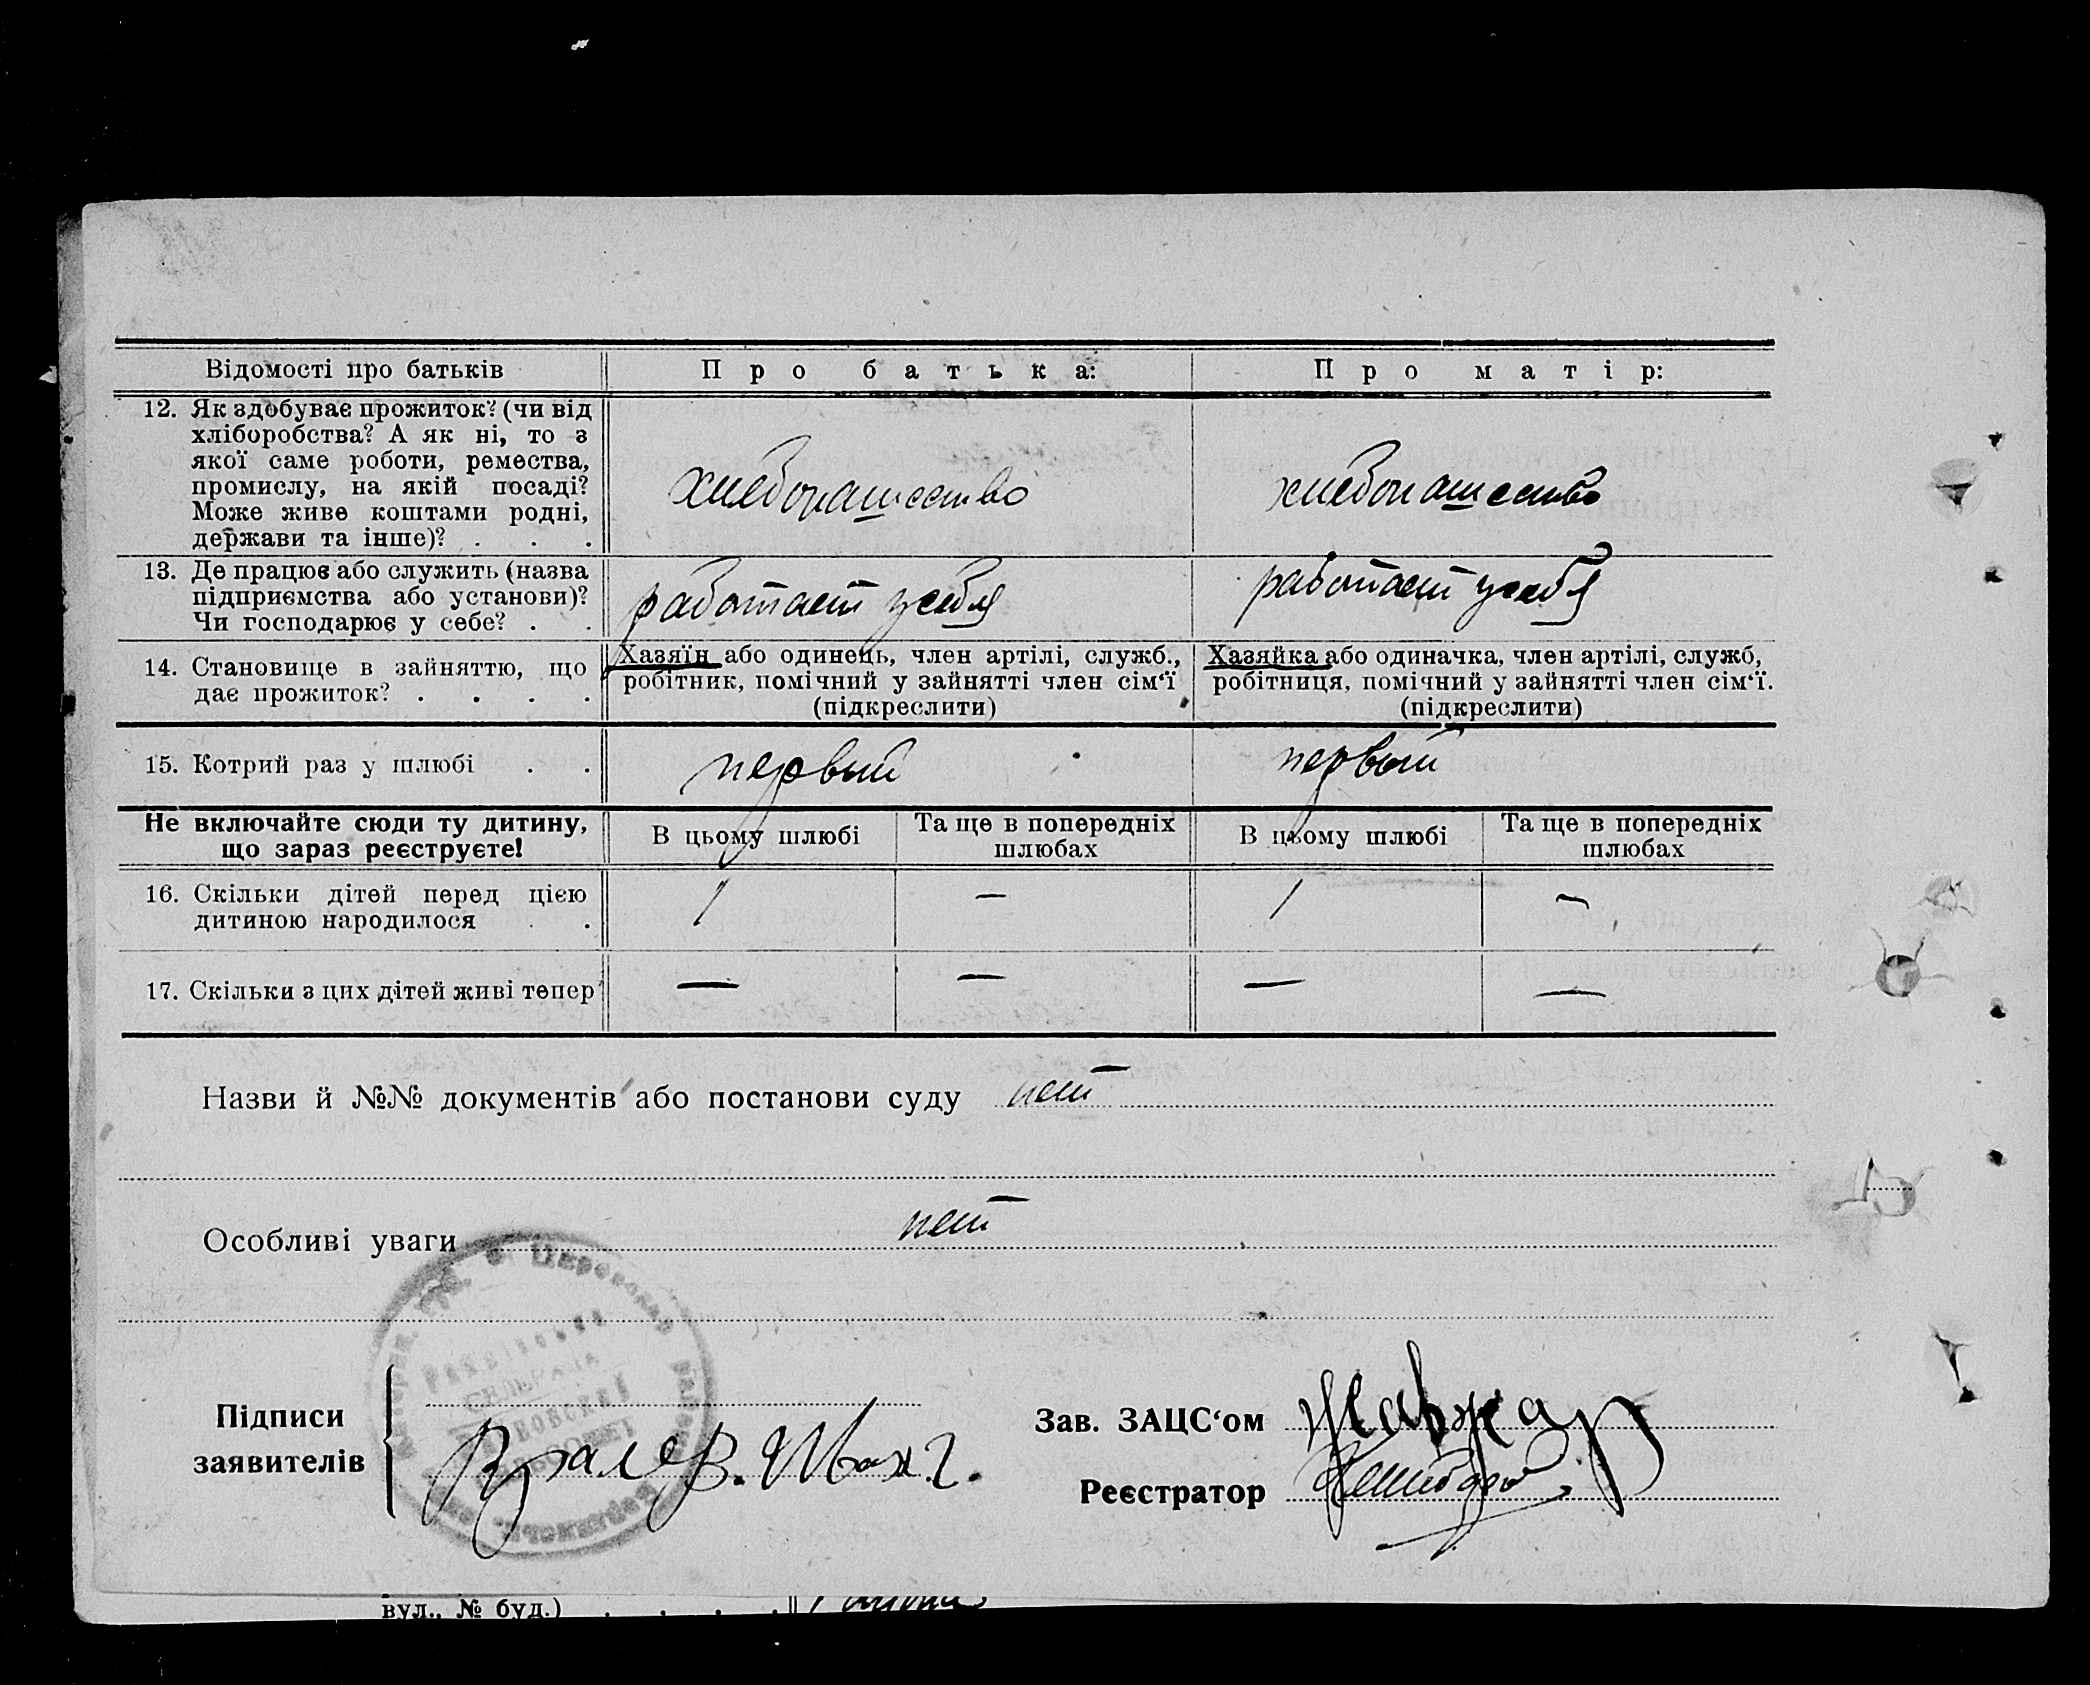 Відомості про батьків Про батька: Про матір:
12. Як здобуває прожиток? (чи від
хліборобства? А як ні, то з
якої саме роботи, ремества,
промислу, на якій посаді?
Може живе коштами родні,
держави та інше)? . . .
хлебопашество хлебопашество
13. Де працює або служить (назва
підприємства або установи)?
Чи господарює у себе? . .
работает у себя работает у себя
14. Становище в зайняттю, що
дає прожиток? . . . .
Хазяїн або одинець, член артілі, служб.,
робітник, помічний у зайнятті член сім‘ї
(підкреслити)
Хазяйка або одиначка, член артілі, служб,
робітниця, помічний у зайнятті член сім‘ї.
(підкреслити)
15. Котрий раз у шлюбі . . первый первый
Не включайте сюди ту дитину,
що зараз реєструєте!
В цьому шлюбі
Та ще в попередніх
шлюбах
В цьому шлюбі
Та ще в попередніх
шлюбах
16. Скільки дітей перед цією
дитиною народилося . .
1 — 1 —
17. Скільки з цих дітей живі тепер — — — —
Назви й №№ документів або постанови суду нет
Особливі уваги нет
Підписи
заявителів
Зав. ЗАЦС‘ом
Реєстратор
вул., № буд.) . . . .